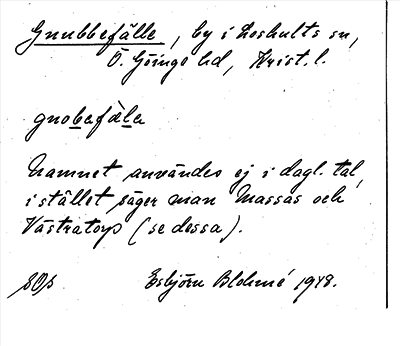 Gnubbefälle, by i Loshults sn,
Ö. Göinge hd, Krist. l.
gnobefàla
Namnet användes ej i dagl. tal,
i stället säger man Massas och
Västratorp (se dessa).
Esbjörn Blohmé 1948.